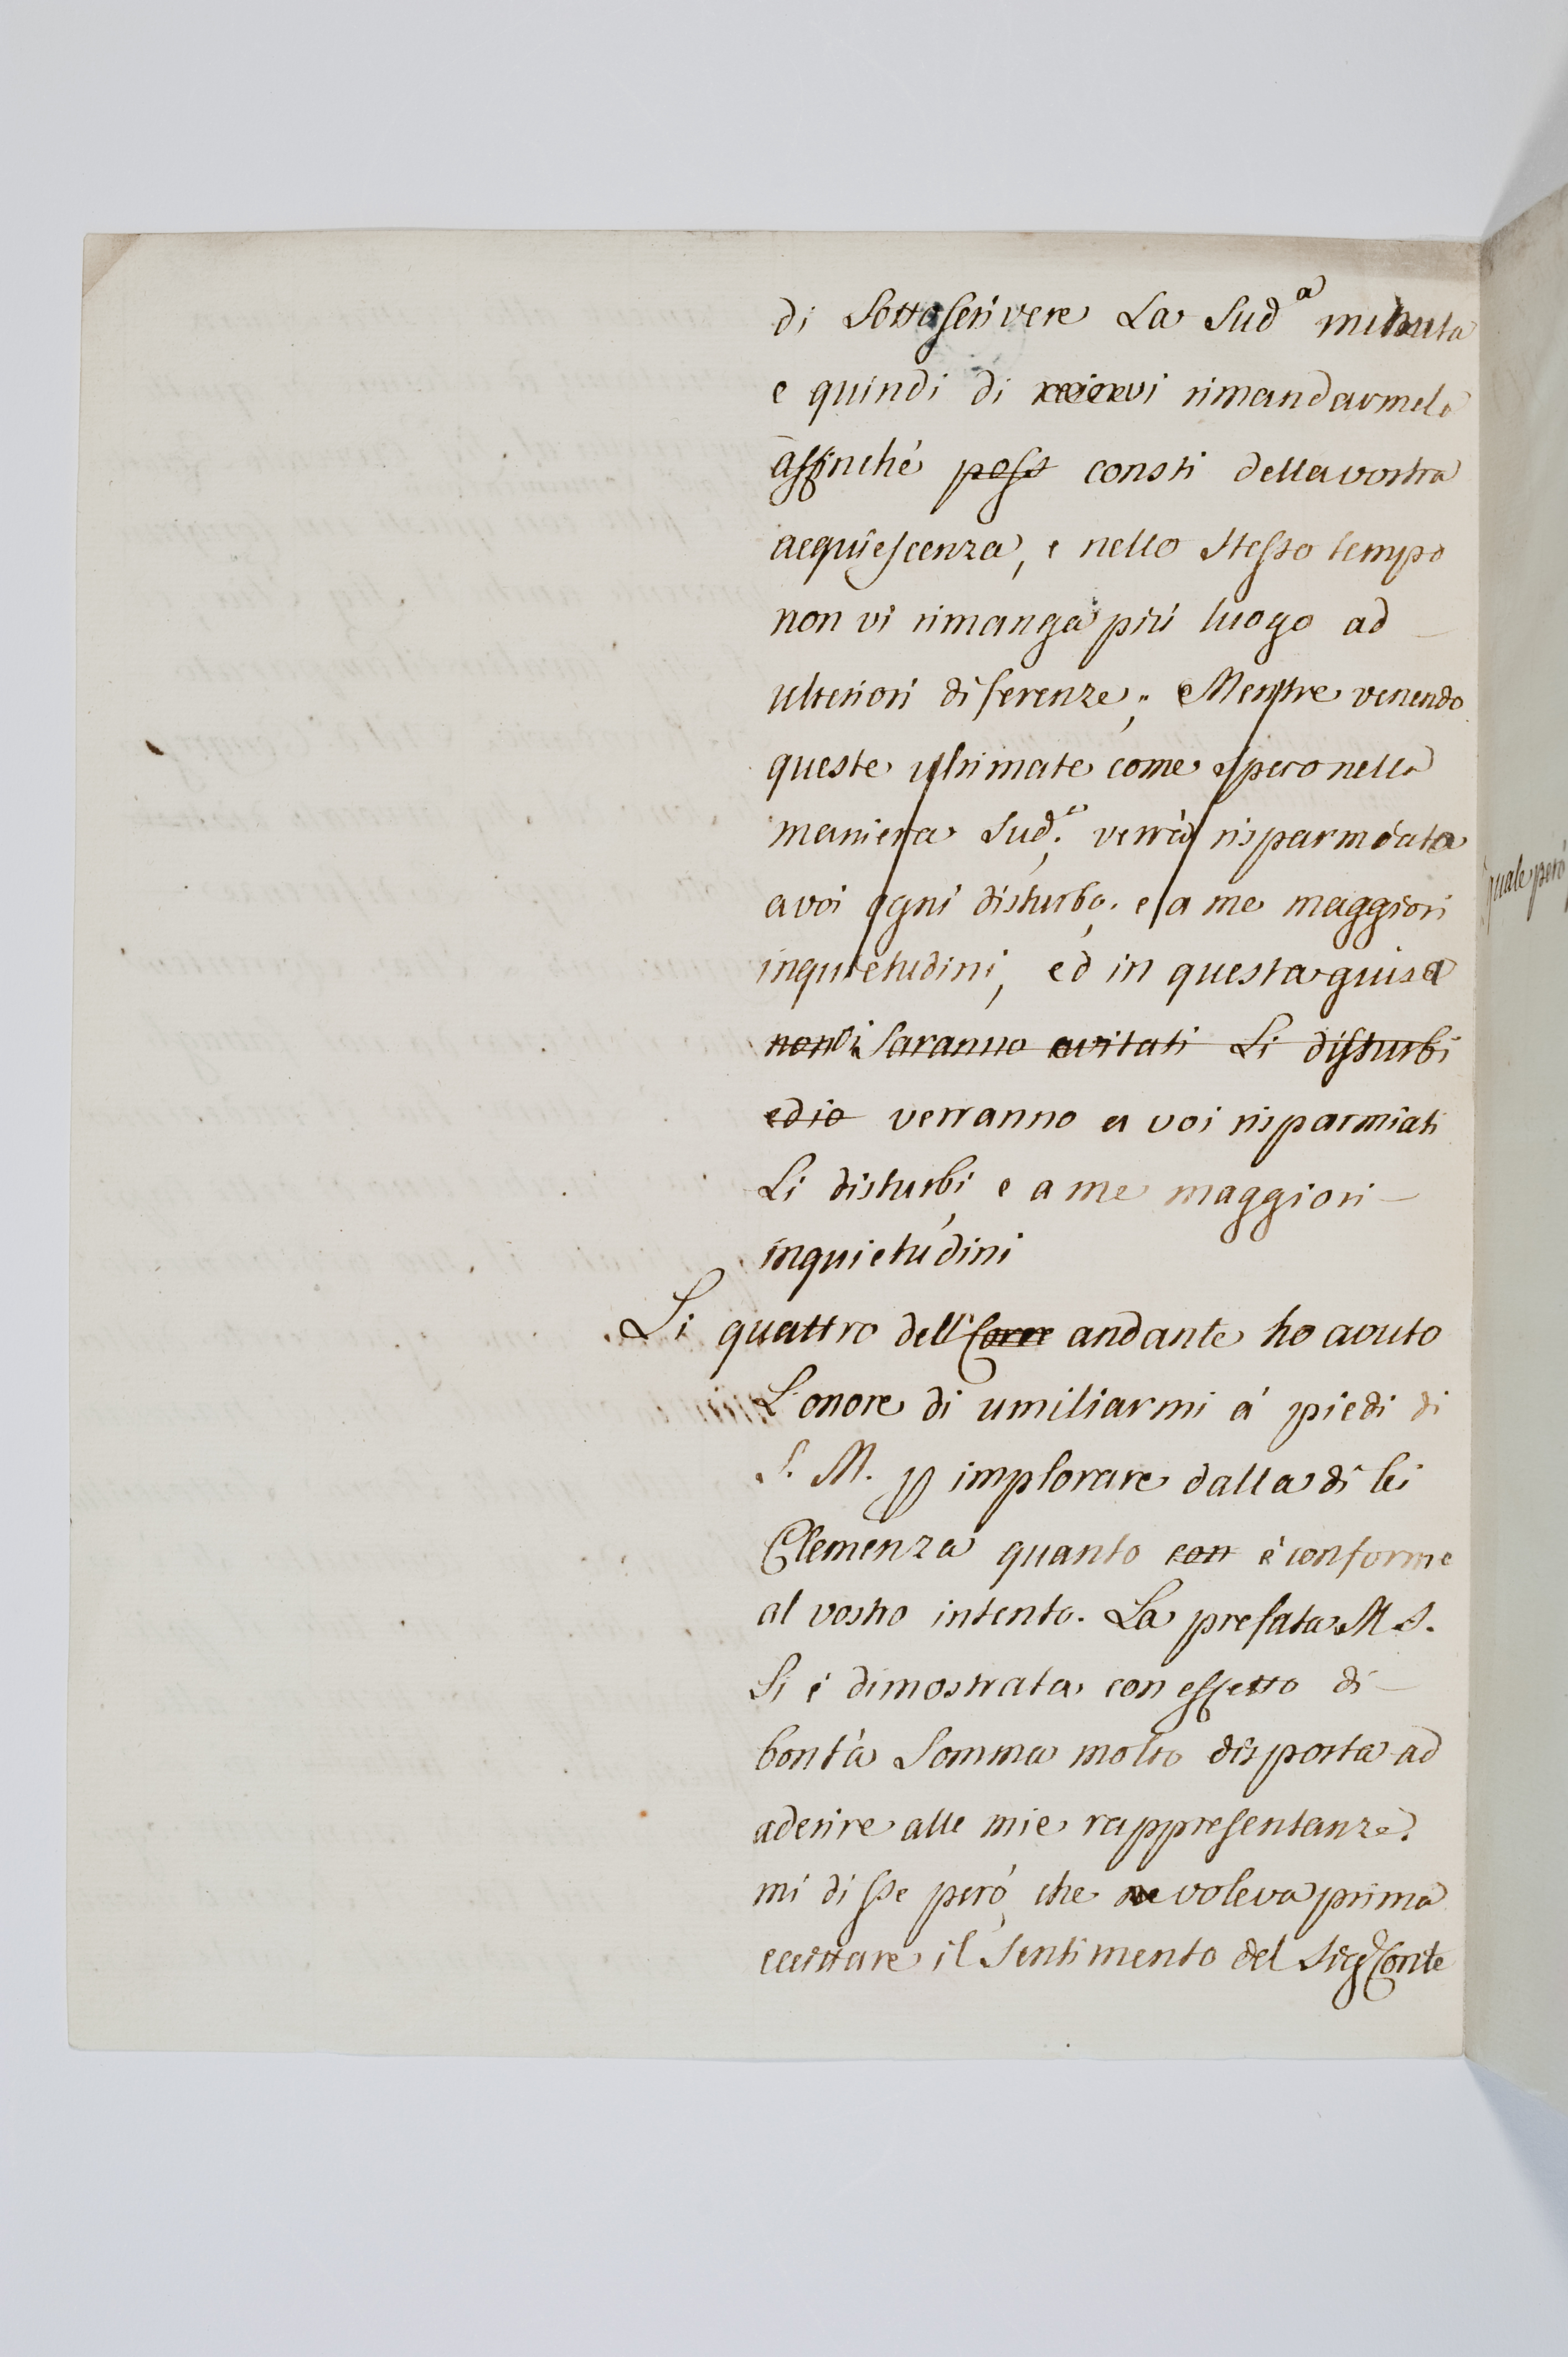 di Sottoscrivere La Sud.a minuta
e quindi di rimandarmela
affinché poss consti della vostra
acquiescenza, e nello stesso tempo
non vi rimanga più luogo ad
ulteriori diferenze; Mentre venendo
queste ultimate come spero nella
maniera Sud.a; verrà risparmiata
a voi ogni disturbo, e a me maggiori
inquietudini, ed in questa guisa
non vi Saranno evitati Li disturbi
edio verranno a voi risparmiati
Li disturbi, e a me maggiori
inquietudini
Li quattro dell' Corre andante ho avuto
L'onore di umiliarmi á piedi di
S. M. p implorare dalla di lei
Clemenza quanto con è conforme
al vostro intento. La prefata M. S.
Si è dimostrata con effetto di
bontà Somma molto disposta ad
aderire alle mie rappresentanze.
mi disse però, che voleva prima
il Sentimento del Sigr Conte
quale però